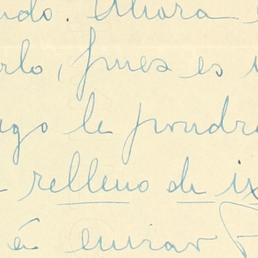 ndo. Ahora
rlo, pues es
go le pondr
relleno de
á enviar